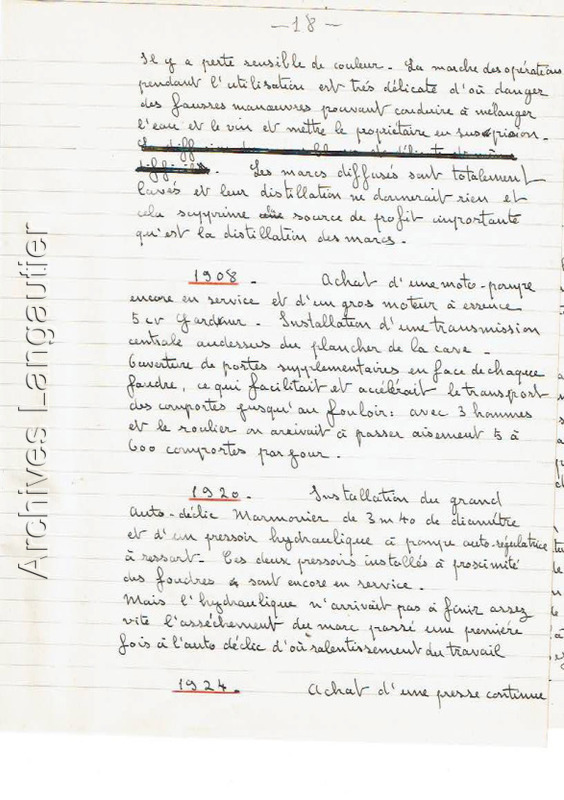 — 18 —
Il y a perte sensible de couleur - La marche des opérations
pendant l'utilisation est très délicate d'où danger
des fausses manœuvres pouvant conduire à mélanger
l'eau et le vin et mettre le propriétaire en suspision -
Les marcs diffusés sont totalement
lavés et leur distillation ne donnerait rien et
cela supprime une source de profit importante
qu'est la distillation des marcs -
1908 - Achat d'une moto-pompe
encore en service et d'un gros moteur à essence
5 cv - Installation d'une transmission
centrale audessus du plancher de la cave -
Ouverture de portes supplémentaires en face de chaque
foudre, ce qui facilitait et accélérait le transport
des comportes jusqu'au fouloir : avec 3 hommes
et le roulier on arrivait à passer aisement 5 à
600 comportes par jour -
1920 - Installation du grand
Auto-déclic Marmonier de 3 m 40 de diamètre
et d'un pressoir hydraulique à pompe auto-régulatrice
à ressort - Ces deux pressoirs installés à proximité
des foudres sont encore en service -
Mais l'hydraulique n'arrivait pas à finir assez
vite l'asséchement du marc passé une première
fois à l'auto déclic d'où ralentissement du travail
1924 - Achat d'une presse continue
Archives Langautier